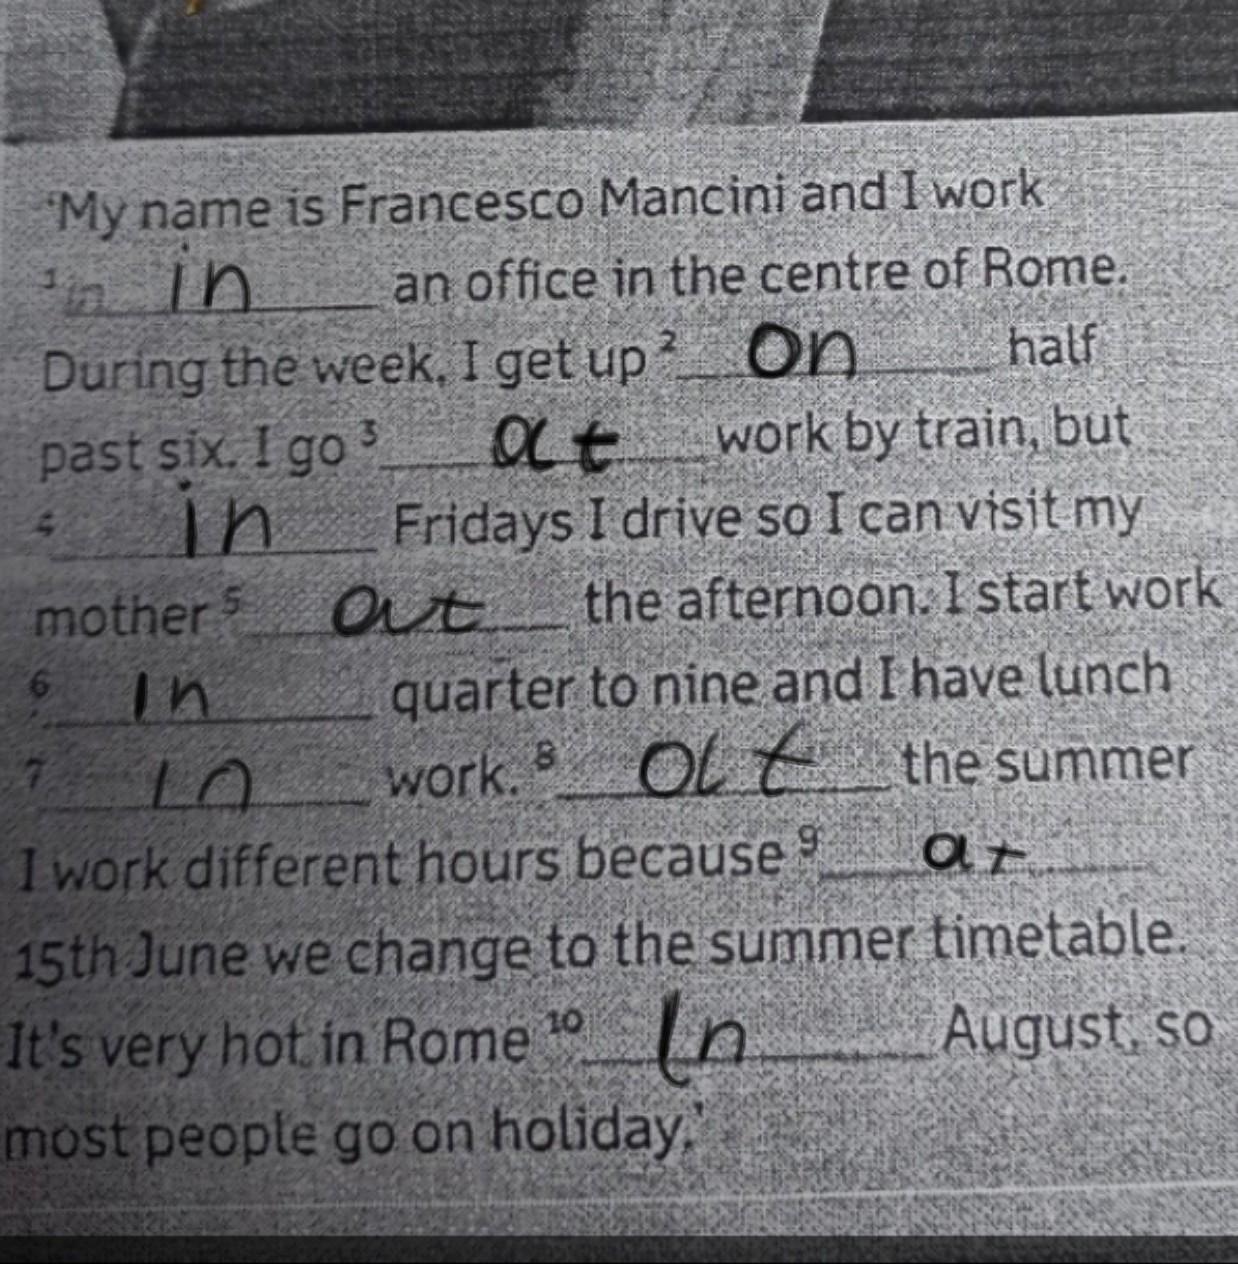 'My name is Francesco Mancini and I work
1 in in an office in the centre of Rome.
During the week, I get up 2 on half
past six. I go 3 at work by train, but
4 in Fridays I drive so I can visit my
mother 5 out the afternoon. I start work
6 in quarter to nine and I have lunch
7 in work. 8 at the summer
I work different hours because 9 at
15th June we change to the summer timetable.
It's very hot in Rome 10 In August, so
most people go on holiday.'